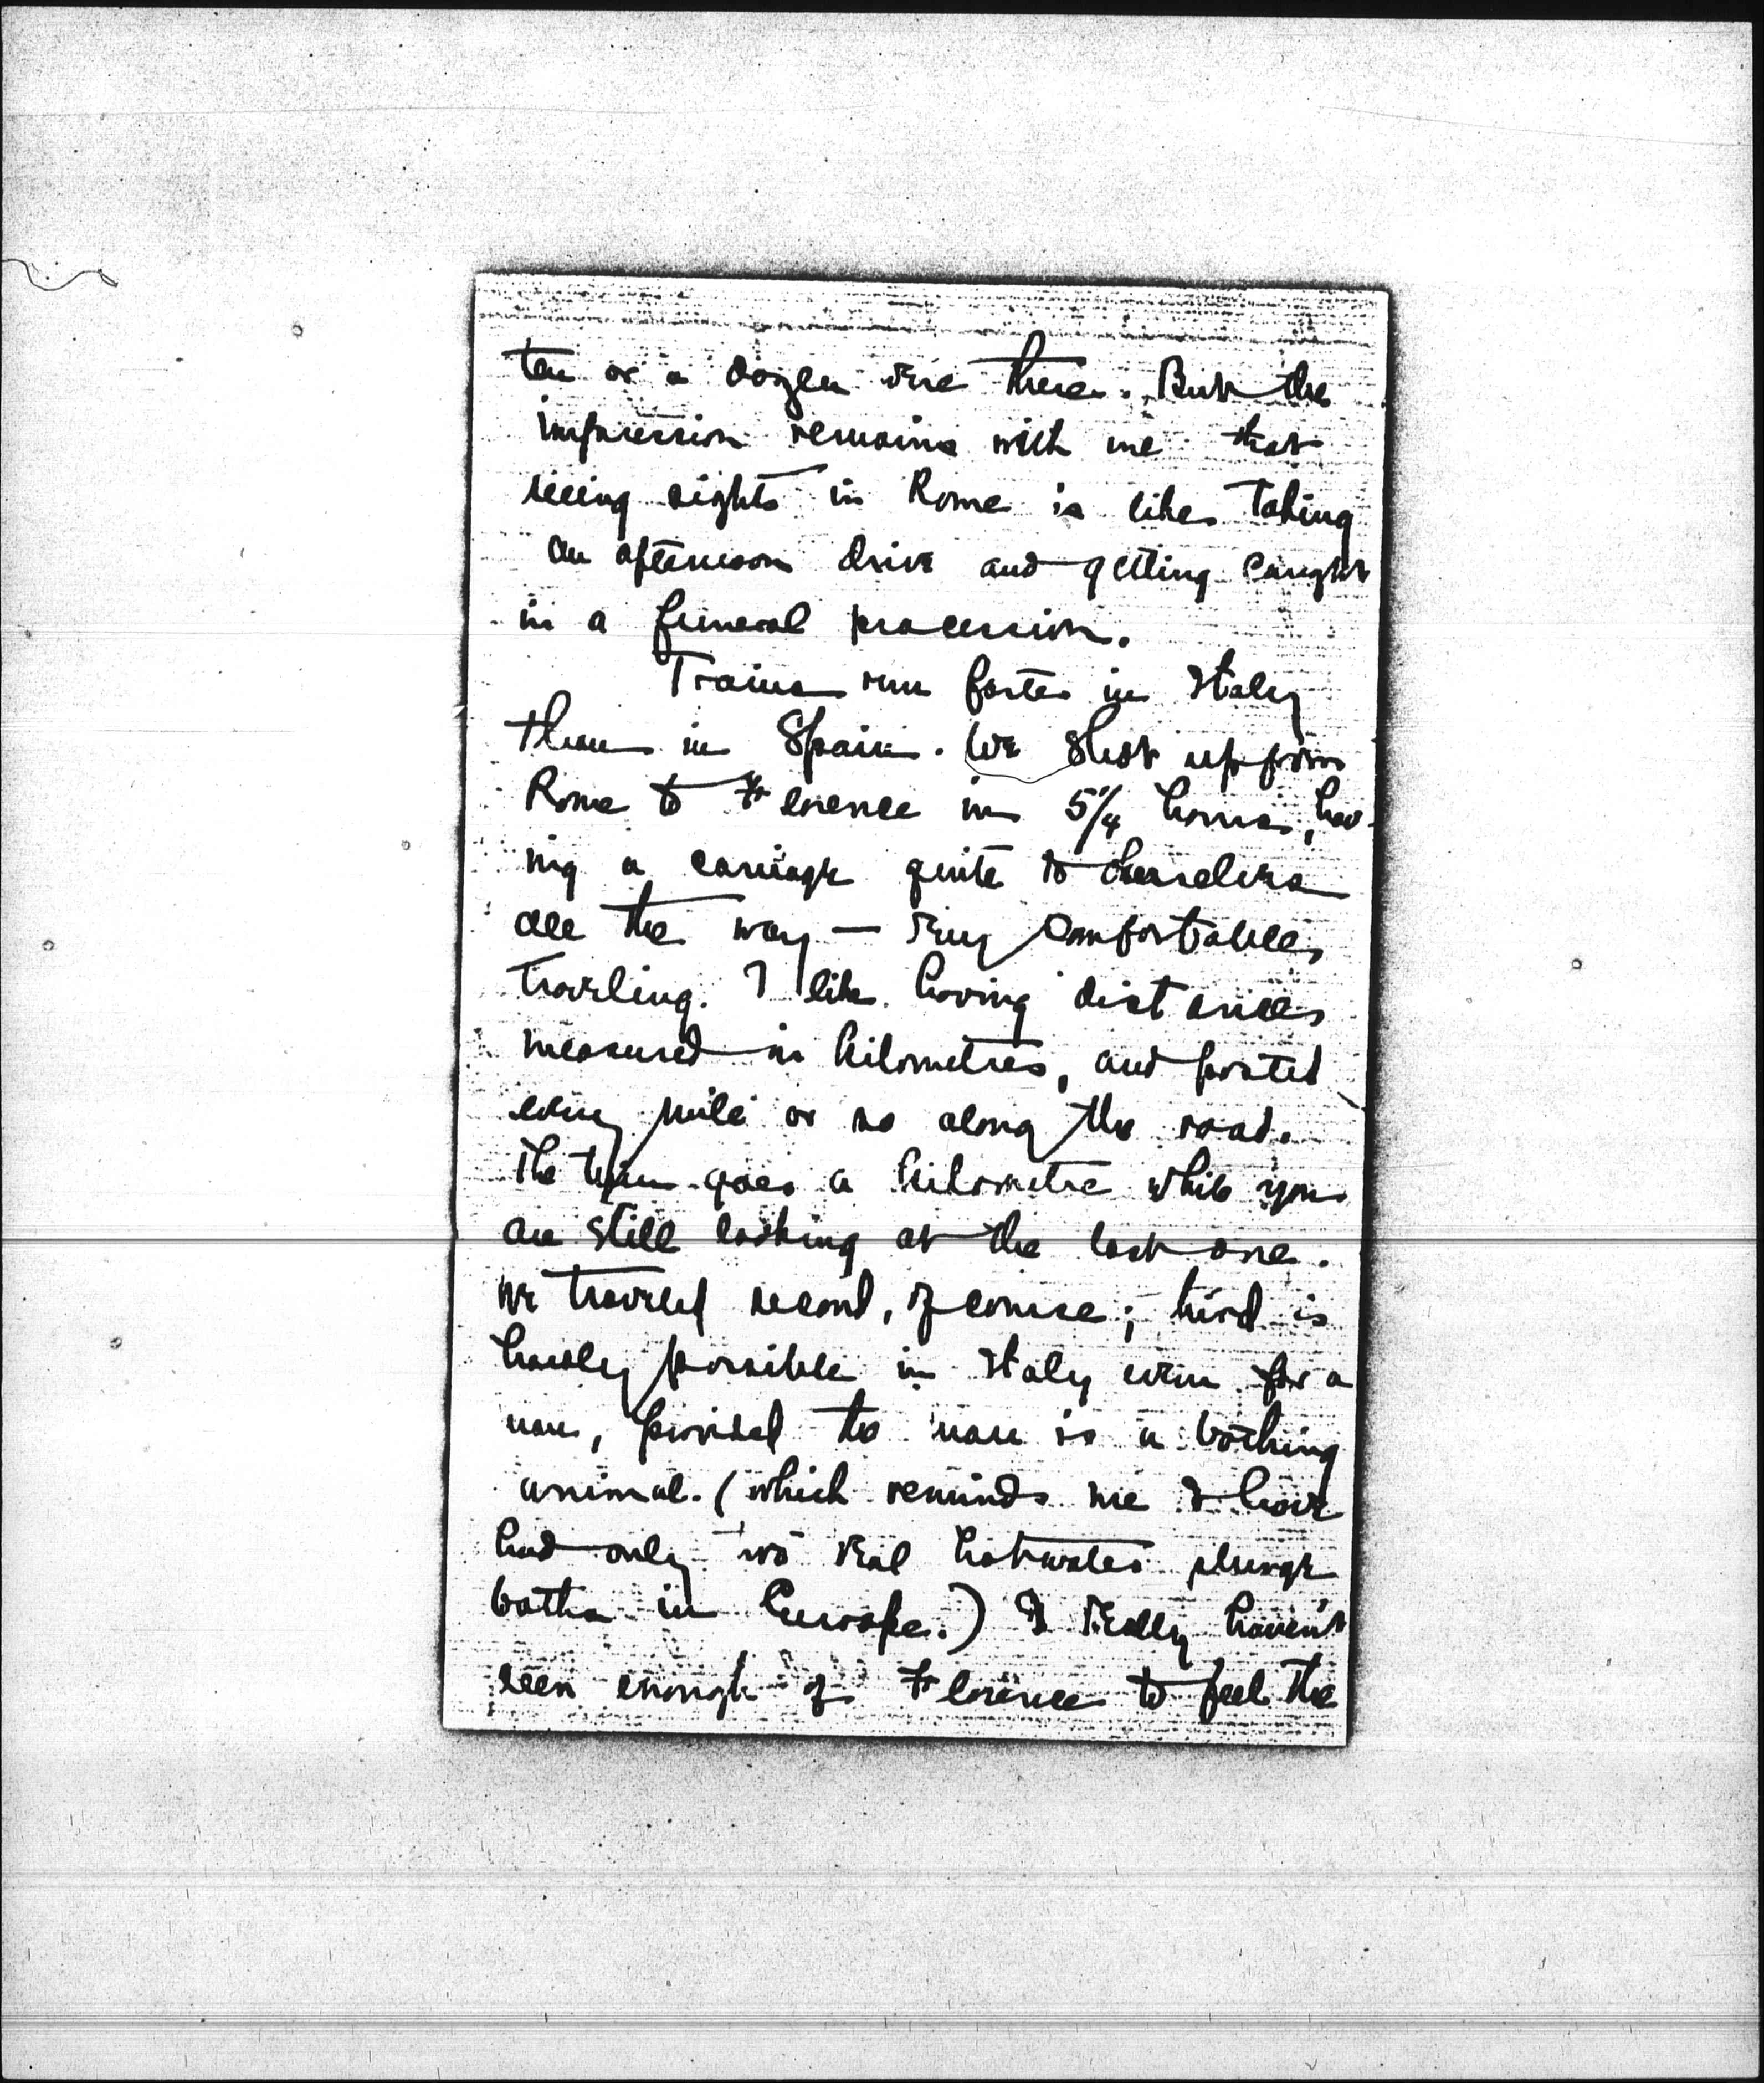 ten or a dozen were there. But the
impression remains with me that
seeing sights in Rome is like taking
an afternoon drive and getting caught
in a funeral procession.
Trains run faster in Italy
than in Spain. We shot up from
Rome to Florence in 5¼ hours, hav-
ing a carriage quite to ourselves
all the way — very comfortable
traveling. I like having distances
measured in kilometres, and posted
every mile or so along the road.
The train goes a kilometre while you
are still looking at the last one.
We traveled second, of course; third is
hardly possible in Italy even for a
man, provided the man is a bathing
animal. (which reminds me I have
had only two real hotwater plunge
baths in Europe.) I really haven't
seen enough of Florence to feel the